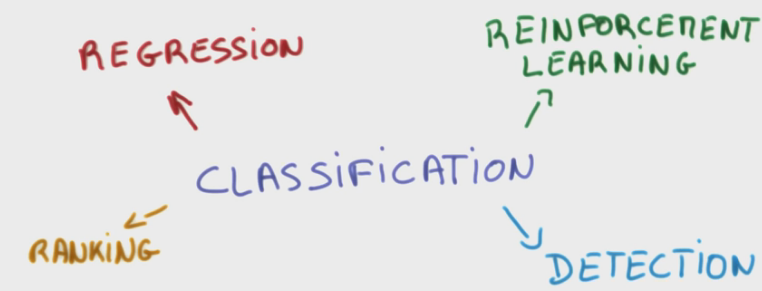 REGRESSION
REINFORCEMENT
LEARNING
CLASSiFiCATiON
RANKiNG
DETECTiON